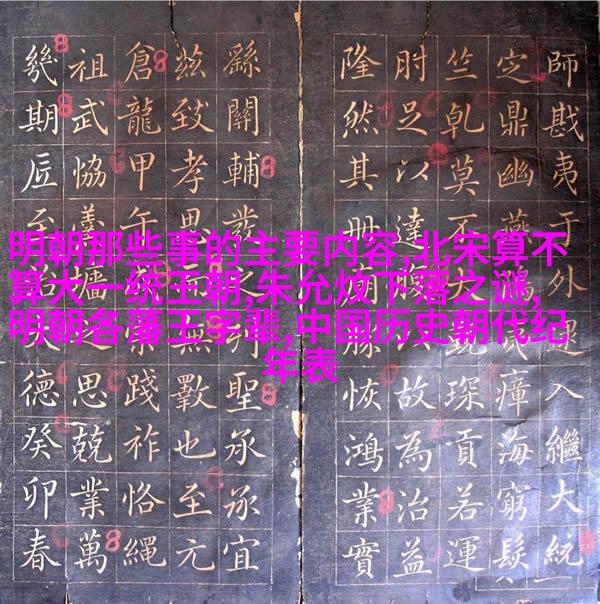 明朝那些事的主要内容,北宋算不
算大一统王朝,朱允炆下落之谜,
明朝各藩王字辈,中国历史朝代纪
年表
師戡夷于外入繼大統
定鼎幽燕瘴海窮髮
竺乹莫不大琛貢若運
肘足以達腹故為治益
隆然其册廟勝恢鴻業實
繇關輔發列聖承承宜
茲致孝思無斁也至元
倉龍甲午踐祚恪繩
祖武恊墻思兢業萬
幾期至治德癸卯春